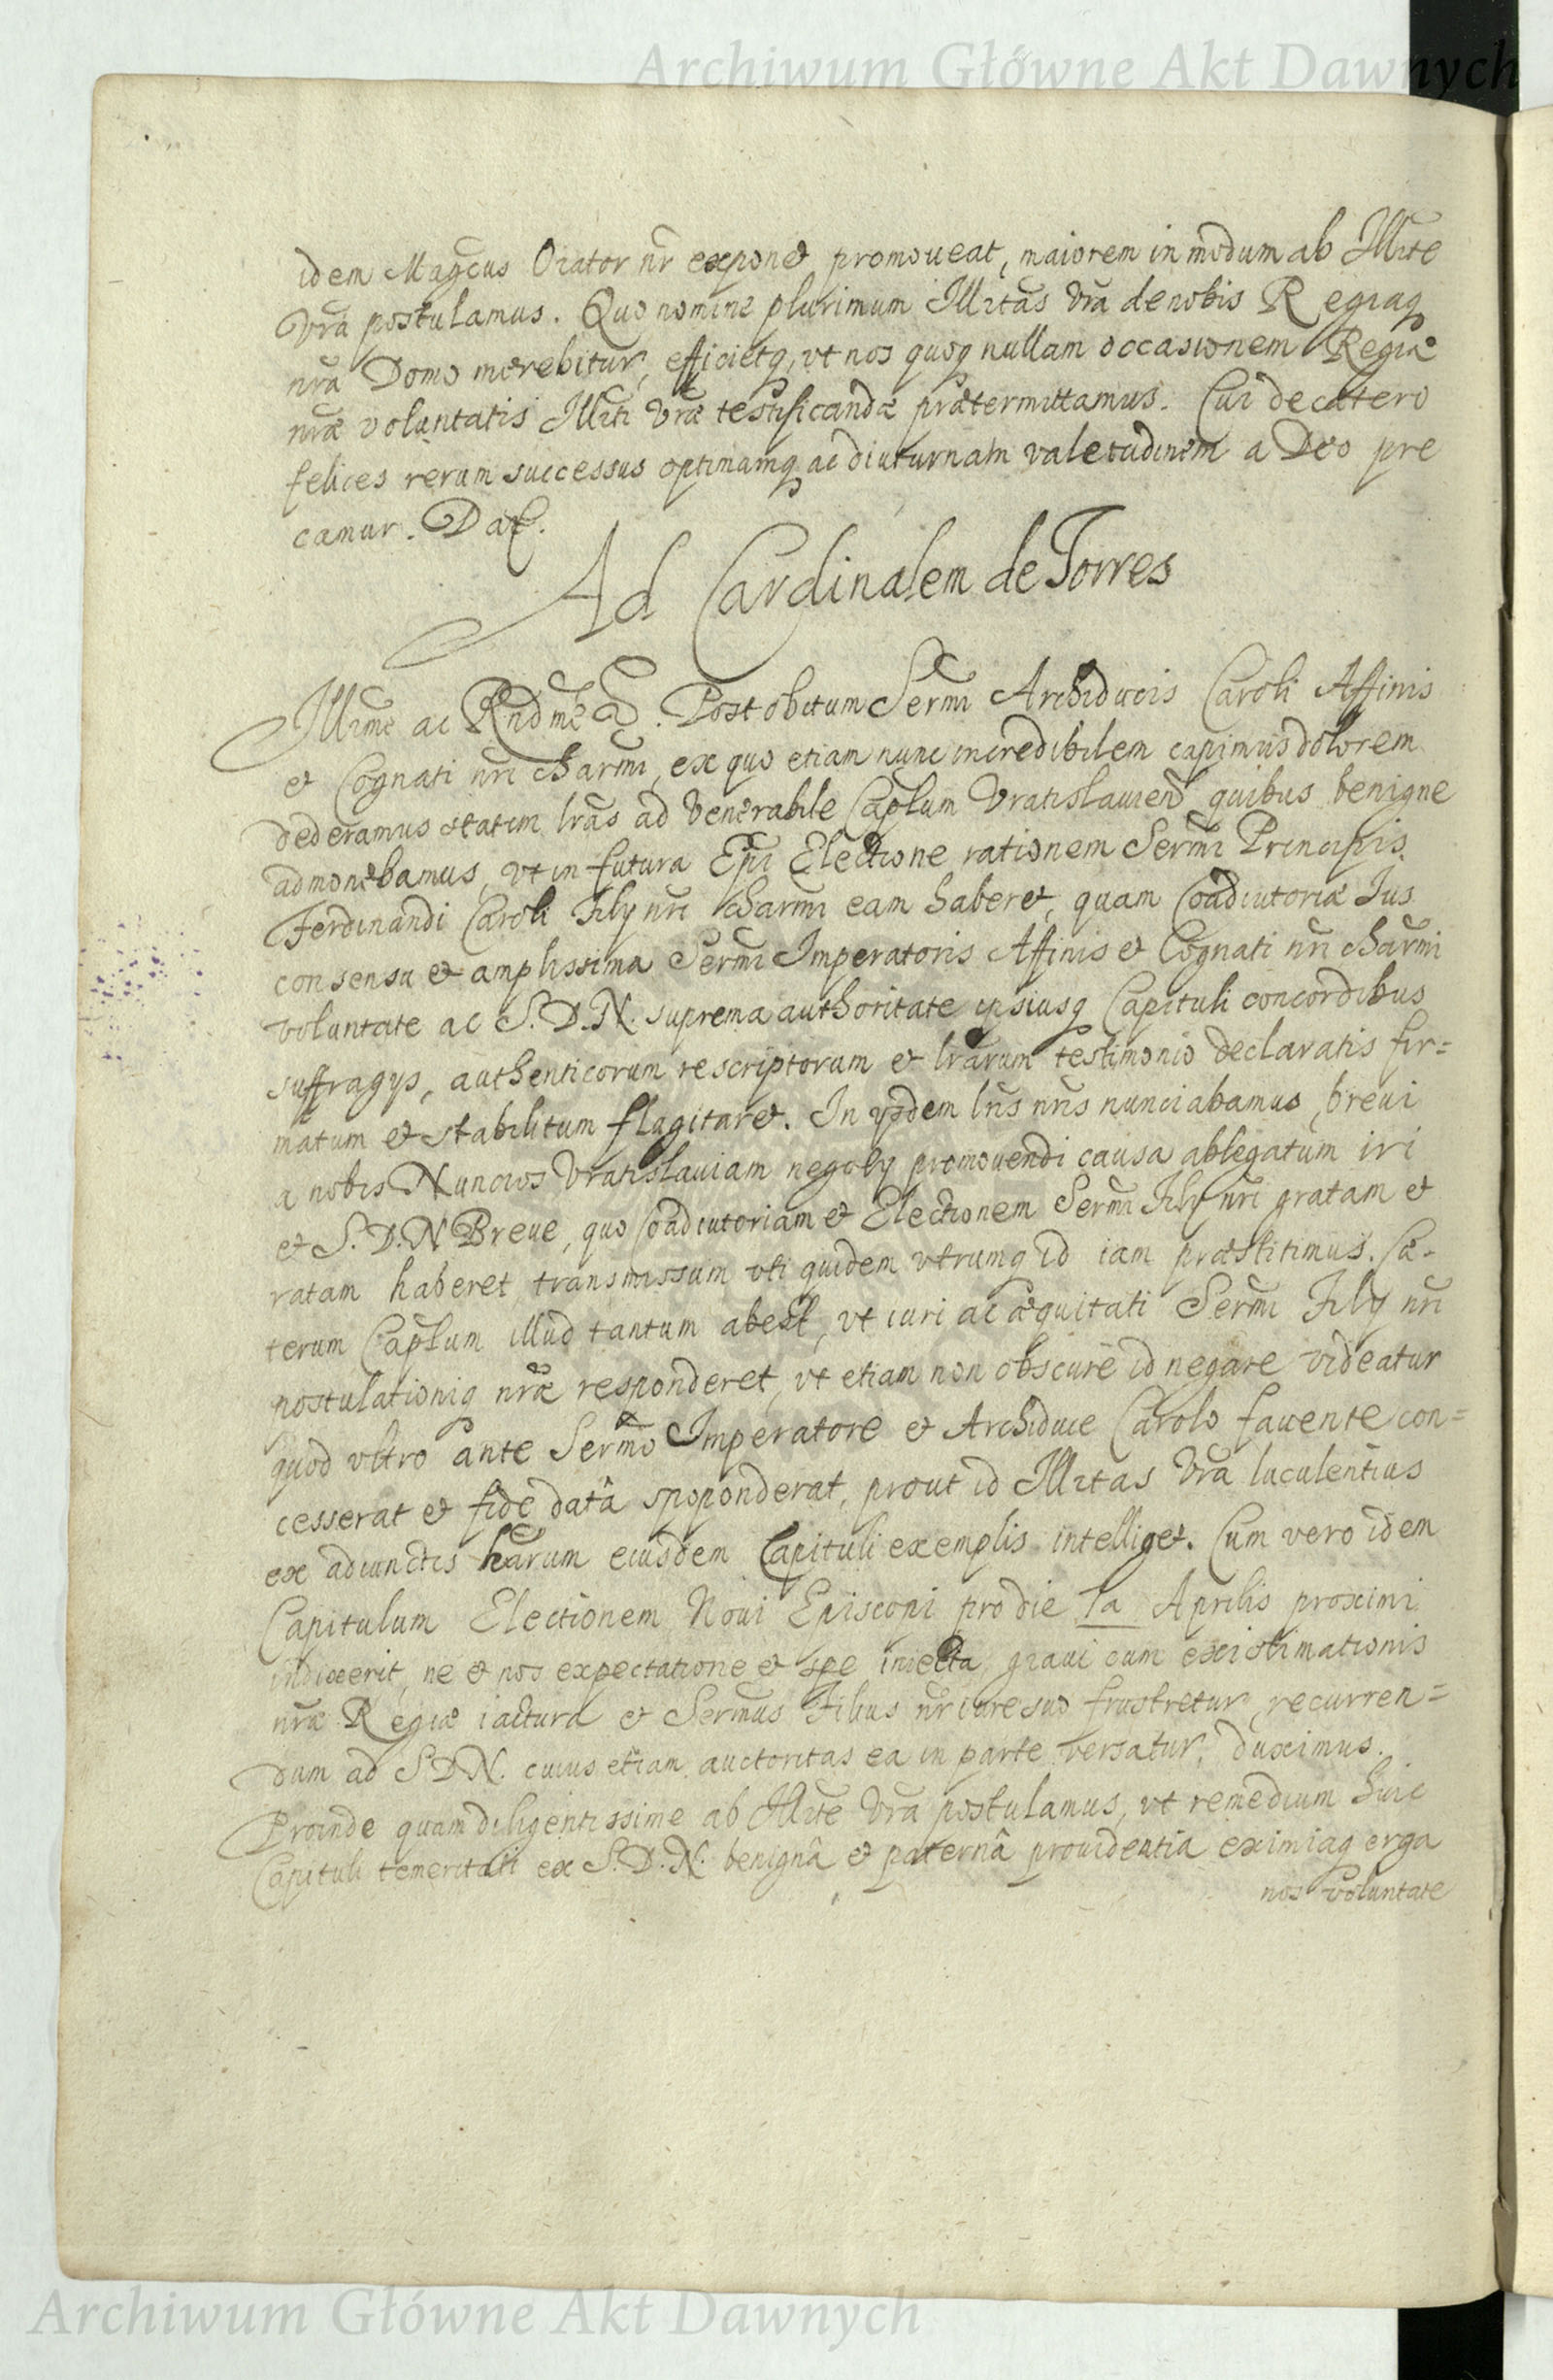 Archiwum Główne Akt Dawnych
idem Magcus Orator nr̃ exponet promoueat, maiorem in modum ab Illr̃te
Vr̃a postulamus. Quo nomine plurimum Illr̃tas Vr̃a de nobis Regiaq
nr̃a Domo merebitur, efficietq, vt nos quoq nullam occasionem Regiæ
nr̃æ voluntatis Illr̃ti Vr̃æ testificandæ prætermittamus. Cui de cætero
felices rerum successus optimamq ac diuturnam valetudinem a Deo pre
camur. Dat.
Ad Cardinalem de Torres
Illr̃me ac Rndme D. Post obitum Sermi Archiducis Caroli Affinis
et Cognati nr̃i charmi, ex quo etiam nunc incredibilem capimus dolorem
dederamus statim lr̃as ad Venerabile Caplum Vratislauien quibus benigne
admonebamus, vt in futura Epi Electione rationem Sermi Principis
Ferdinandi Caroli Filij nr̃i charmi eam haberet, quam Coadiutoriæ Ius
consensu et amplissima Sermi Imperatoris Affinis et Cognati nr̃i charmi
voluntate ac S. D. N. suprema authoritate ipsiusq Capituli concordibus
suffragijs, authenticorum rescriptorum et lr̃arum testimonio declaratis fir=
matum et stabilitum flagitaret. In ijsdem lr̃is nr̃is nunciabamus, breui
a nobis Nuncios Vratislauiam negotij promouendi causa ablegatum iri
et S. D. N Breue, quo Coadiutoriam et Electionem Sermi Filij nr̃i gratam et
ratam haberet, transmissum vti quidem vtrumq id iam præstitimus. Cæ-
terum Caplum illud tantum abest, vt iuri ac æquitati Sermi Filij nr̃i
postulationiq nr̃æ responderet, vt etiam non obscurè id negare videatur
quod vltro ante Sermo Imperatore et Archiduce Carolo fauente con=
cesserat et fide datâ spoponderat, prout id Illr̃tas Vr̃a luculentius
ex adiunctis harum eiusdem Capituli exemplis intelliget. Cum vero idem
Capitulum Electionem Noui Episcopi pro die 1a Aprilis proximi
indixerit, ne et nos expectatione et spe iniecta, graui cum existimationis
nr̃æ Regiæ iactura et Sermus Filius nr̃ iure suo frustretur, recurren=
dum ad S D N. cuius etiam auctoritas ea in parte versatur, duximus.
Proinde quam diligentissime ab Illr̃te Vr̃a postulamus, vt remedium huic
Capituli temeritati ex S. D. N. benignâ et paternâ prouidentia eximiaq erga
nos voluntate
Archiwum Główne Akt Dawnych